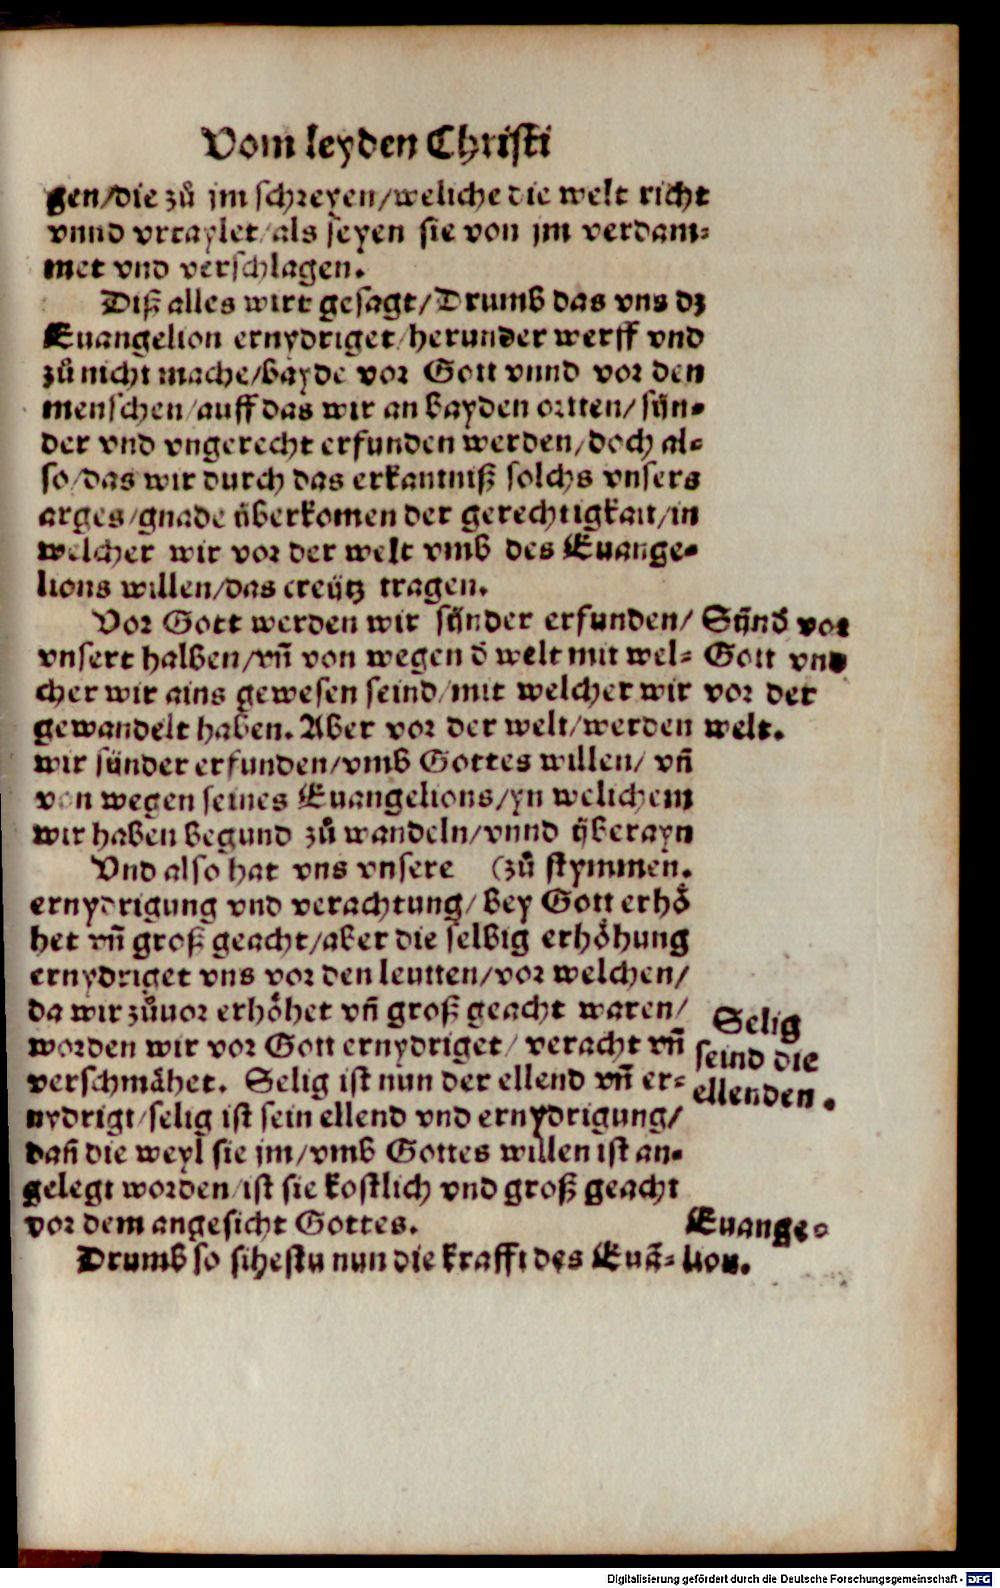 Vom leyden Christi
gen/die zů jm schreyen/weliche die welt richt
vnnd vrtaylet/als seyen sie von jm verdam⸗
met vnd verschlagen.
Diß alles wirt gesagt/Drumb das vns dz
Euangelion ernydriget/herunder werff vnd
zů nicht mache/bayde vor Gott vnnd vor den
menschen/auff das wir an bayden ortten/sün⸗
der vnd vngerecht erfunden werden/doch al⸗
so/das wir durch das erkantniß solchs vnsers
arges/gnade überkomen der gerechtigkait/in
welcher wir vor der welt vmb des Euange⸗
lions willen/das creütz tragen.
Vor Gott werden wir sünder erfunden/
vnsert halben/vn̄ von wegen d̄ welt mit wel⸗
cher wir ains gewesen seind/mit welcher wir
gewandelt haben. Aber vor der welt/werden
wir sünder erfunden/vmb Gottes willen/ vn̄
von wegen seines Euangelions/yn welichem
wir haben begund zů wandeln/vnnd überayn
Vnd also hat vns vnsere (zů stymmen.
ernydrigung vnd verachtung/bey Gott erhoͤ
het vn̄ groß geacht/aber die selbig erhoͤhung
ernydriget vns vor den leutten/vor welchen/
da wir zůuor erhoͤhet vn̄ groß geacht waren/
worden wir vor Gott ernydriget/ veracht vn̄
verschmaͤhet. Selig ist nun der ellend vn̄ er⸗
nydrigt/selig ist sein ellend vnd ernydrigung/
dan̄ die weyl sie jm/vmb Gottes willen ist an⸗
gelegt worden/ist sie kostlich vnd groß geacht
vor dem angesicht Gottes.
Drumb so sihestu nun die krafft des Euā⸗
Sünd̄ vor
Gott vnd
vor der
welt.
Selig
seind die
ellenden.
Euange⸗
lion.
Digitalisierung gefördert durch die Deutsche Forschungsgemeinschaft - DFG